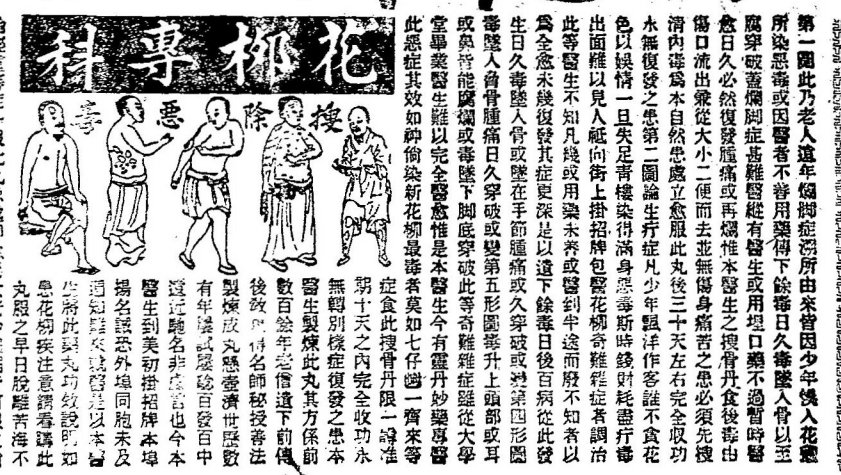 第一圖此乃老人遠年爛脚症溯所由來皆因少年悞入花叢
所染惡毒或因醫者不善用藥傳下餘毒日久毒墜入骨以至
腐穿破蓋爛脚症甚難醫縱有醫生或用埋口藥不過暫時醫
愈日久必然復發腫痛或再爛惟本醫生之搜骨丹食後毒由
傷口流出兼從大小二便而去並無傷身痛苦之患必須先搜
清內毒爲本自然患處立愈服此丸後三十天左右完全收功
永無復發之患第二圖論生疔症凡少年飄洋作客誰不貪花
色以娛情一旦失足靑樓染得滿身惡毒斯時錢財耗盡疔毒
出面難以見人祗向街上掛招牌包醫花柳奇難雜症者調治
此等醫生不知凡幾或用藥未善或醫到半途而廢不知者以
爲全愈未幾復發其症更深是以遺下餘毒日後百病從此發
生日久毒墜入骨或墜在手節腫痛或久穿破或變第四形圖
毒墜入脊骨腫痛日久穿破或變第五形圖毒升上頭部或耳
或鼻皆能腐爛或毒墜下脚底穿破此等奇難雜症踵從大學
堂畢業醫生難以完全醫愈惟是本醫生今有靈丹妙藥專醫
此惡症其效如神倘染新花柳最毒者莫如七仔 一齊來等
花柳專科
搜除惡毒
症食此搜骨丹限一 准
期十天之內完全收功永
無轉別樣症復發之患本
醫生製煉此丸其方係前
數百餘年老信遺下前傳
後敎 得名師秘授善法
製煉成丸懸壺濟世歷數
有年屢試屢驗百發百中
遠近馳名非虛言也今本
醫生到美初掛招牌本埠
揚名誠恐外埠同胞未及
週知 來就醫是以本醫
生將此藥丸功效說明如
患花柳疾注意請看購此
丸服之早日脫離苦海不